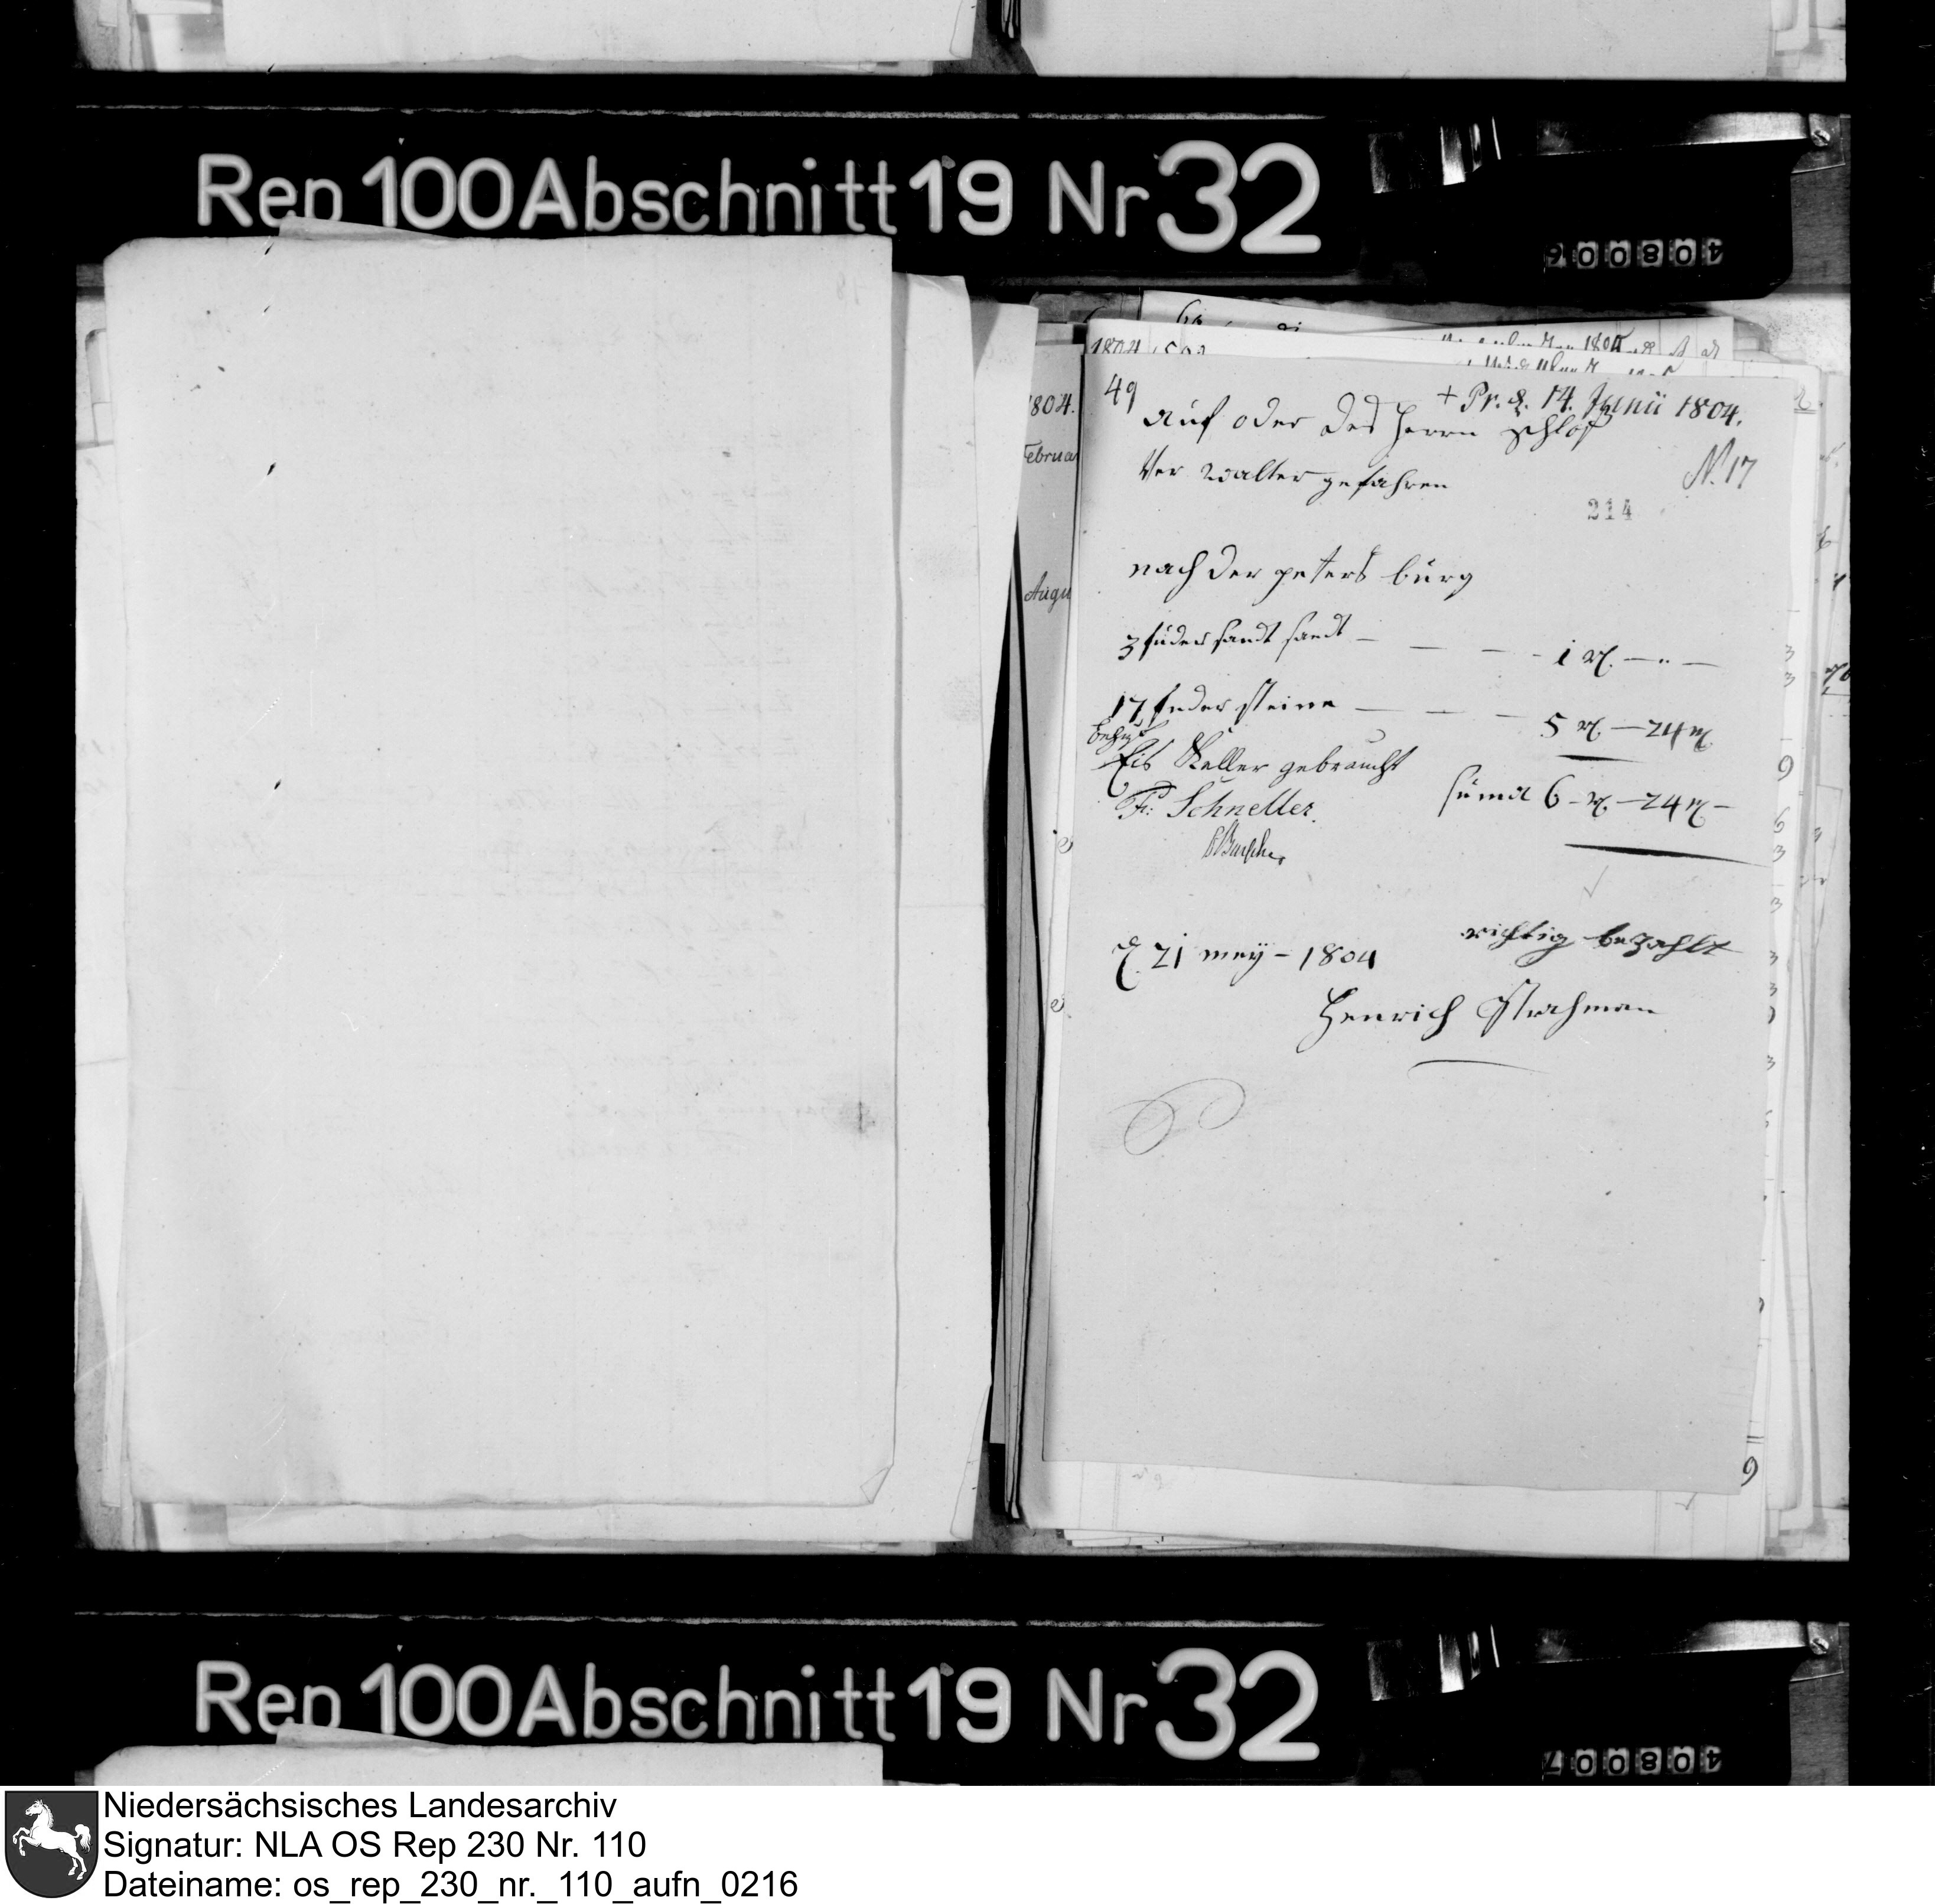 Rep 100 Abschnitt 19 Nr 32
408006
1804.
Februar
Augu
49
+ Pr. d. 14. Junii 1804.
auf oder des Herrn schloß
Ver walter gefahren
N. 17
214
nach der peters burg
3 fuder sandt — — — 1 rt. — „ —
17 fuder steine — — — 5 rt. — 24 rl
behuf
Eis Keller gebraucht
suma 6 - rt. — 24 rl —
F: Schneller.
d. 21 meÿ - 1804
richtig bezahlt
Henrich Strahman
Rep 100 Abschnitt 19 Nr 32
408007
Niedersächsisches Landesarchiv
Signatur: NLA OS Rep 230 Nr. 110
Dateiname: os_rep_230_nr._110_aufn_0216